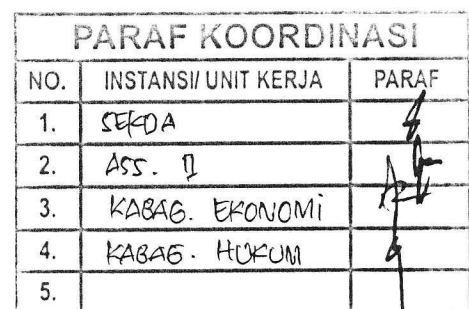 PARAF KOORDINASI
NO. INSTANSI/ UNIT KERJA PARAF
1. SEKDA
2. ASS. II
3. KABAG. EKONOMI
4. KABAG. HUKUM
5.